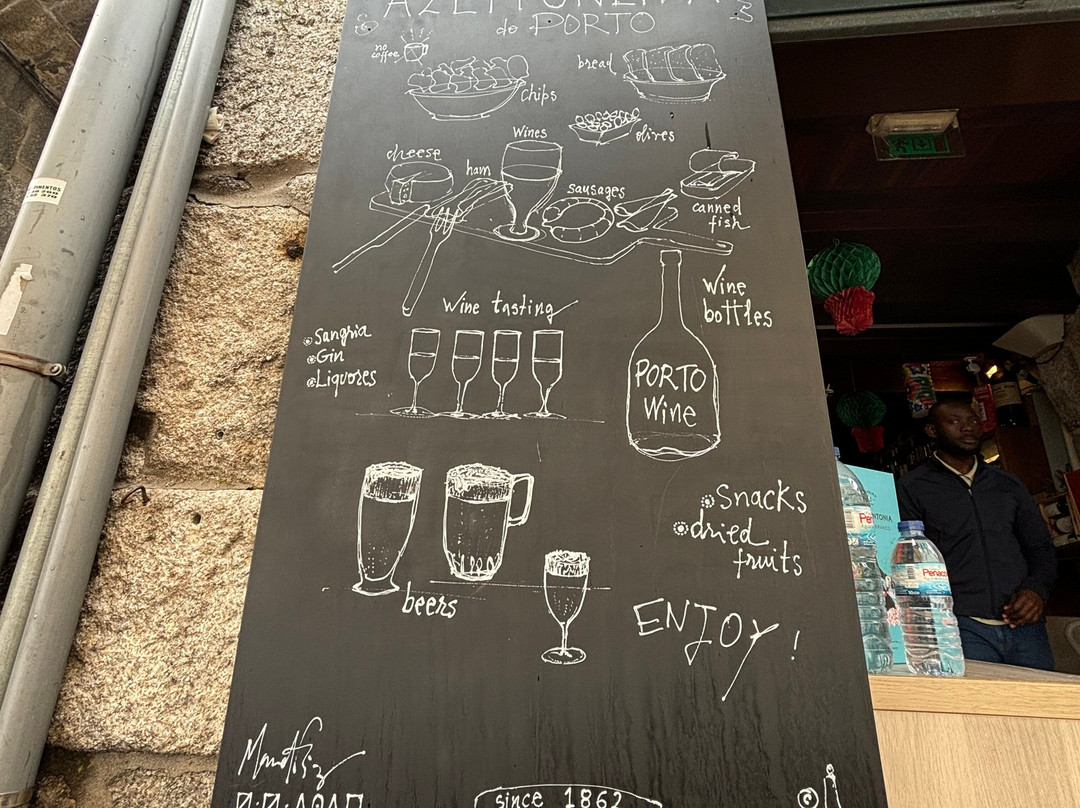 AZEITONEIRA
do PORTO
no
coffee
chips
bread
olives
wines
cheese
ham
sausages
canned
fish
Wine tasting
Sangria
Gin
Liquores
Wine
bottles
PORTO
Wine
beers
Snacks
dried
fruits
ENJOY!
since 1862